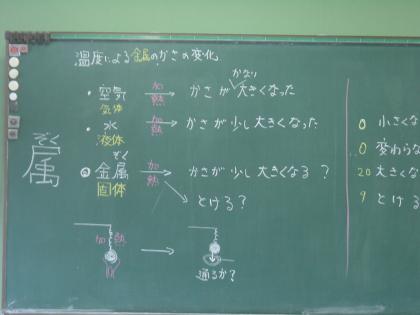 温度による金属のかさの変化
かなり
・空気 加熱 かさが大きくなった
気体
・水 加熱 かさが少し大きくなった
液体
ぞく
属
ぞく
金属 加熱 かさが少し大きくなる?
固体
とける?
加熱
通るか?
0 小さくな
0 変わらな
20 大きくな
9 とける